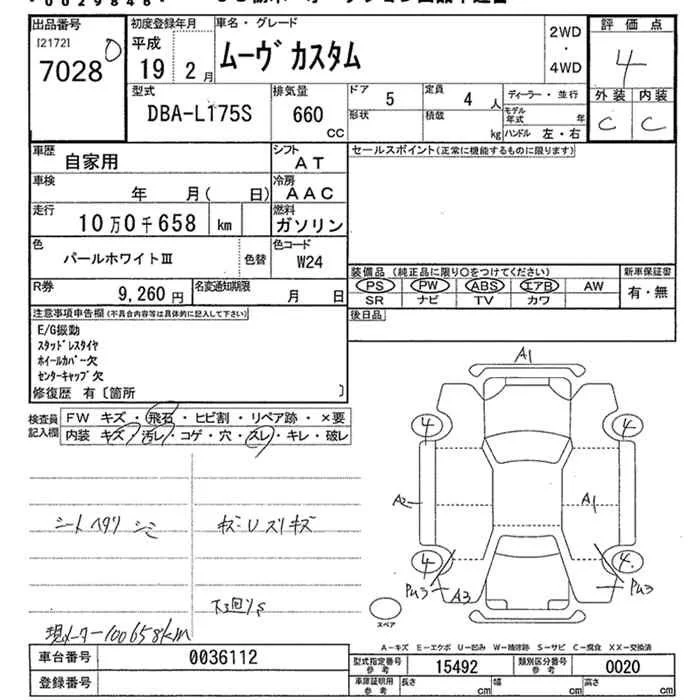 出品番号
[2172]
7028
初度登録年月
平成
19 2月
車名・グレード
ムーヴ カスタム
2WD
・
4WD
評価点
4
外装 内装
C C
型式
DBA-L175S
排気量
660
CC
ドア
5
定員
4 人
形状
積載
kg
ディーラー・並行
モデル年式 年
ハンドル 左・右
車歴
自家用
シフト
AT
セールスポイント(正常に機能するものに限ります)
車検
年 月( 日)
冷房
AAC
走行
10万0千658 km
燃料
ガソリン
色
パールホワイトⅢ
色替
色コード
W24
R券
9,260円
名変通知期限
月 日
装備品(純正品に限り○をつけてください)
PS PW ABS エアB AW
SR ナビ TV カワ
新車保証書
有・無
後日品
注意事項申告欄(不具合内容等は具体的に記入して下さい)
E/G振動
スタッドレスタイヤ
ホイールカバー欠
センターキャップ欠
修復歴 有〔箇所 〕
検査員
記入欄
FW キズ・飛石・ヒビ割・リペア跡・×要
内装 キズ・汚レ・コゲ・穴・スレ・キレ・破レ
シートヘタリ シミ
キズU スリキズ
下廻りS
現メーター100658km
A1
4 4
A2 A1
4 4
Pu3 A3 Pu3
スペア
A-キズ E-エクボ U-凹み W-補修跡 S-サビ C-腐食 XX-交換済
車台番号
0036112
登録番号
型式指定番号
参考
15492
類別区分番号
参考
0020
車庫証明用
参考
長さ cm
幅 cm
高さ cm